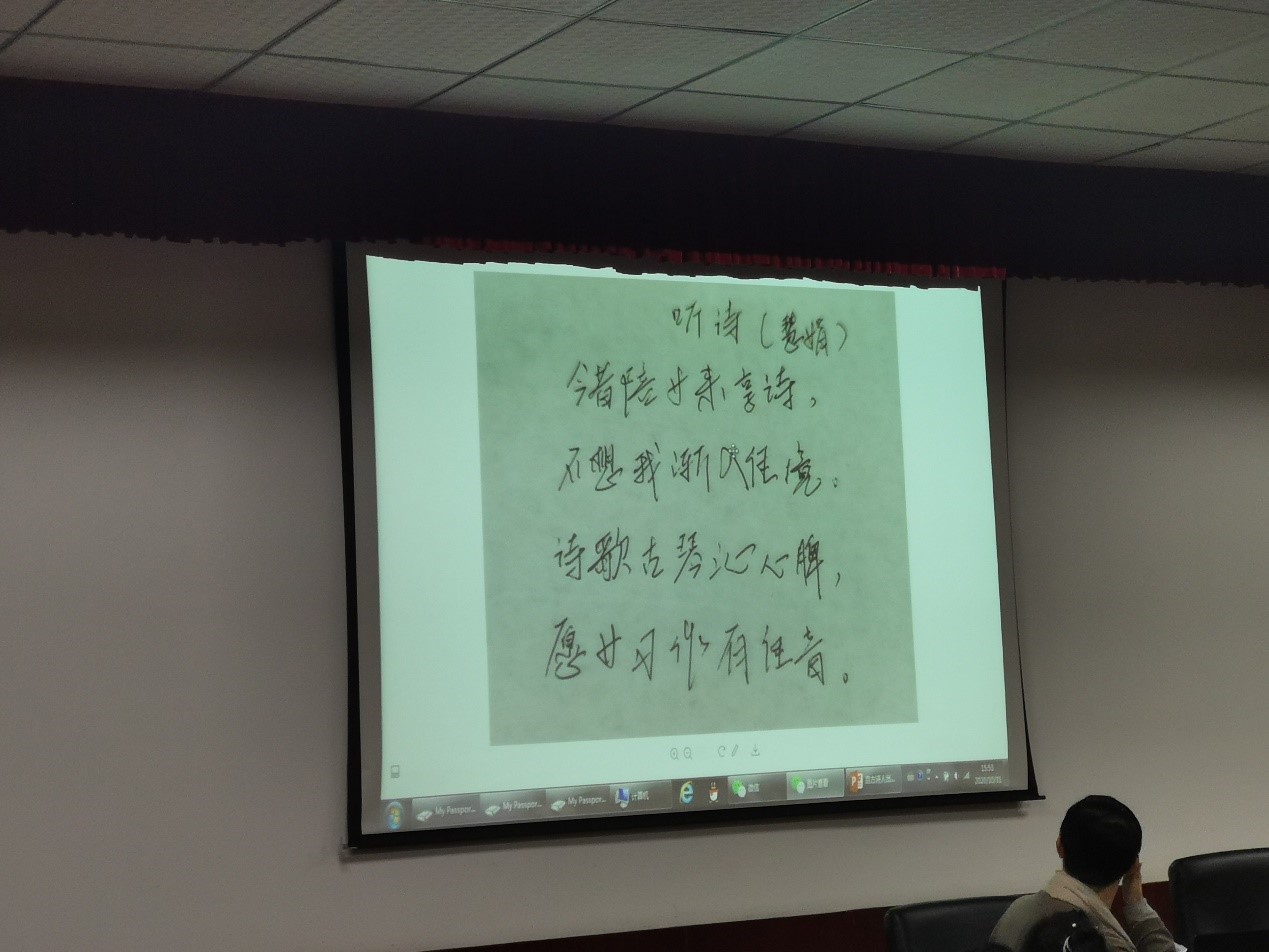 听诗（慧娟）
今昔陪女来享诗，
不想我渐入佳境。
诗歌古琴沁心脾，
愿女习作有佳音。
My Passpor...
My Passpor...
My Passpor...
计算机
微信
图片查看
自古诗人出...
15:51
2020/10/31